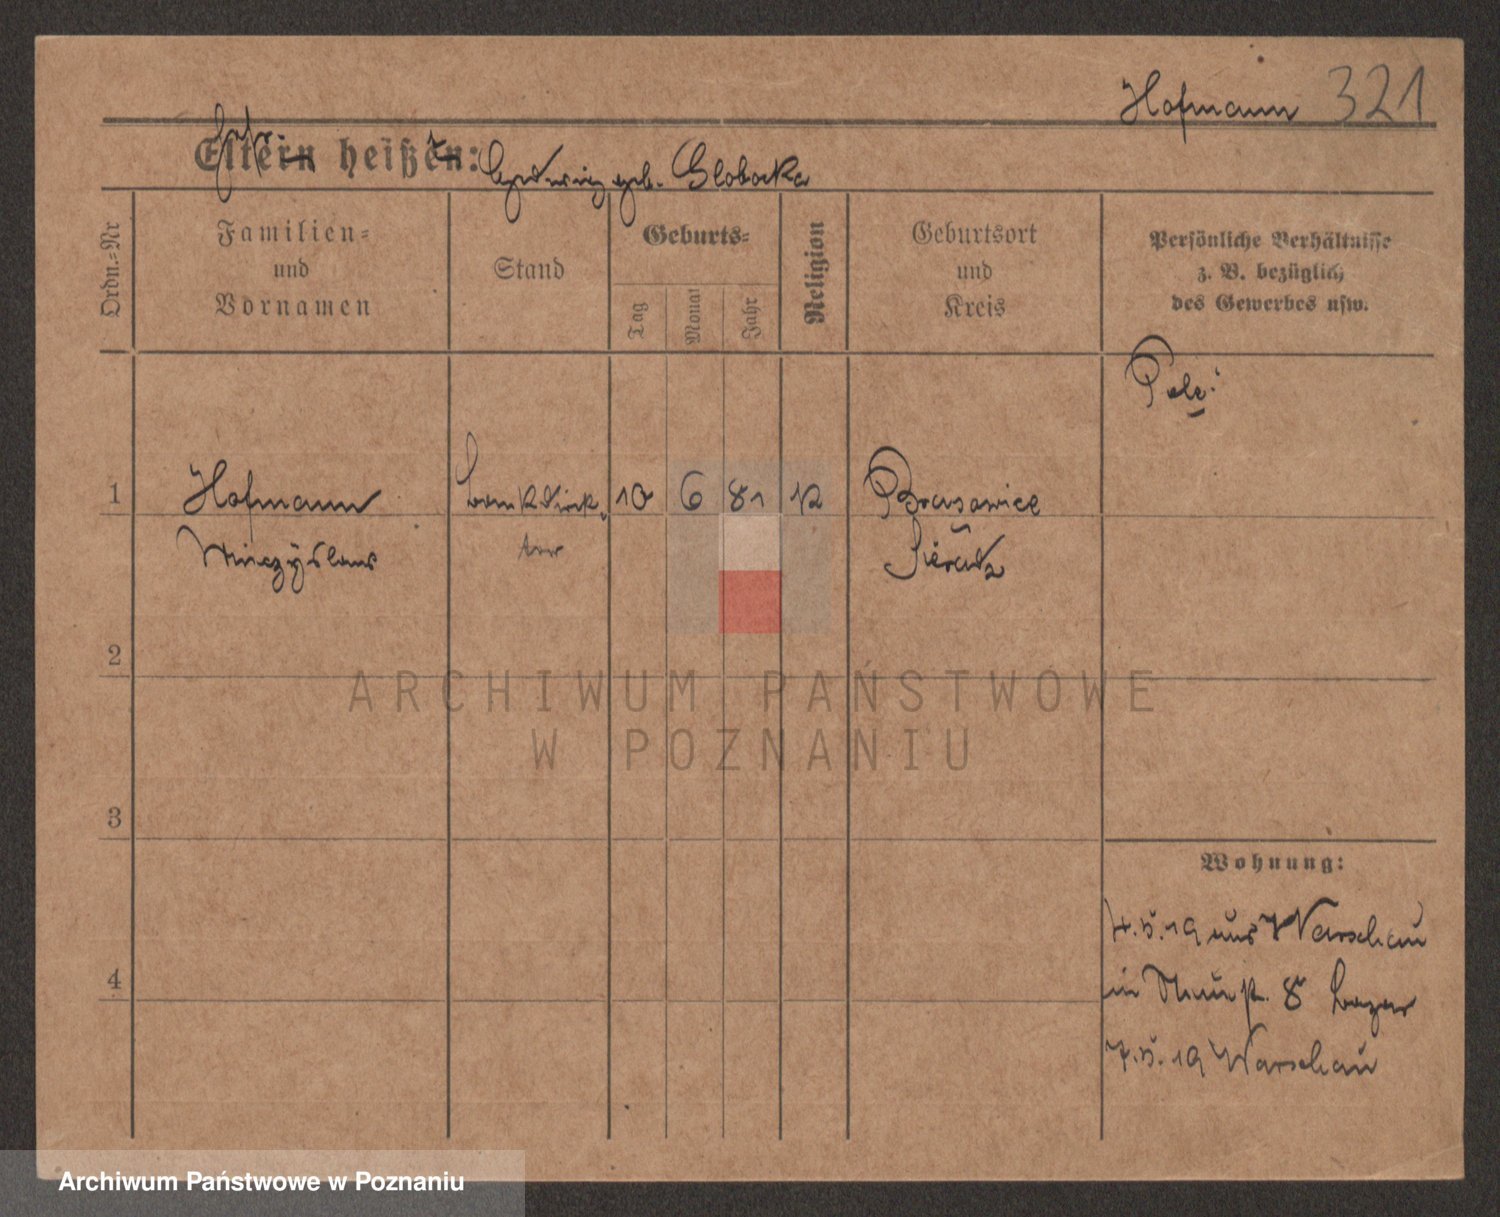 Hofmann 321
Eltern heißen: geb. Globocka
Ordn.=Nr
Familien=
und
Vornamen
Stand
Geburts=
Tag
Monat
Jahr
Religion
Geburtsort
und
Kreis
Persönliche Verhältnisse
z. B. bezüglich
des Gewerbes usw.
Pole.
1
Hofmann
Bankdirek
10 6 81 k
tor
Mieczÿslaus
Sieradz
2
3
4
Wohnung:
4.5.19 aus Warschau
in Neustr. 8 Bazar
7.5.19 Warschau
ARCHIWUM PAŃSTWOWE
W POZNANIU
Archiwum Państwowe w Poznaniu